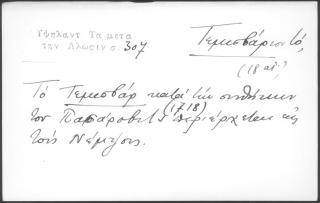 Ὑψηλαντ Τα μετα
την Αλωσιν σ. 307
Τεμεσβάριον τό,
(18 αἰ.)
Τό Τεμεσβάρ κατά τήν συνθήκην
τοῦ Πασάροβιτς (1718) περιέρχεται εἰς
τούς Νέμτζους.